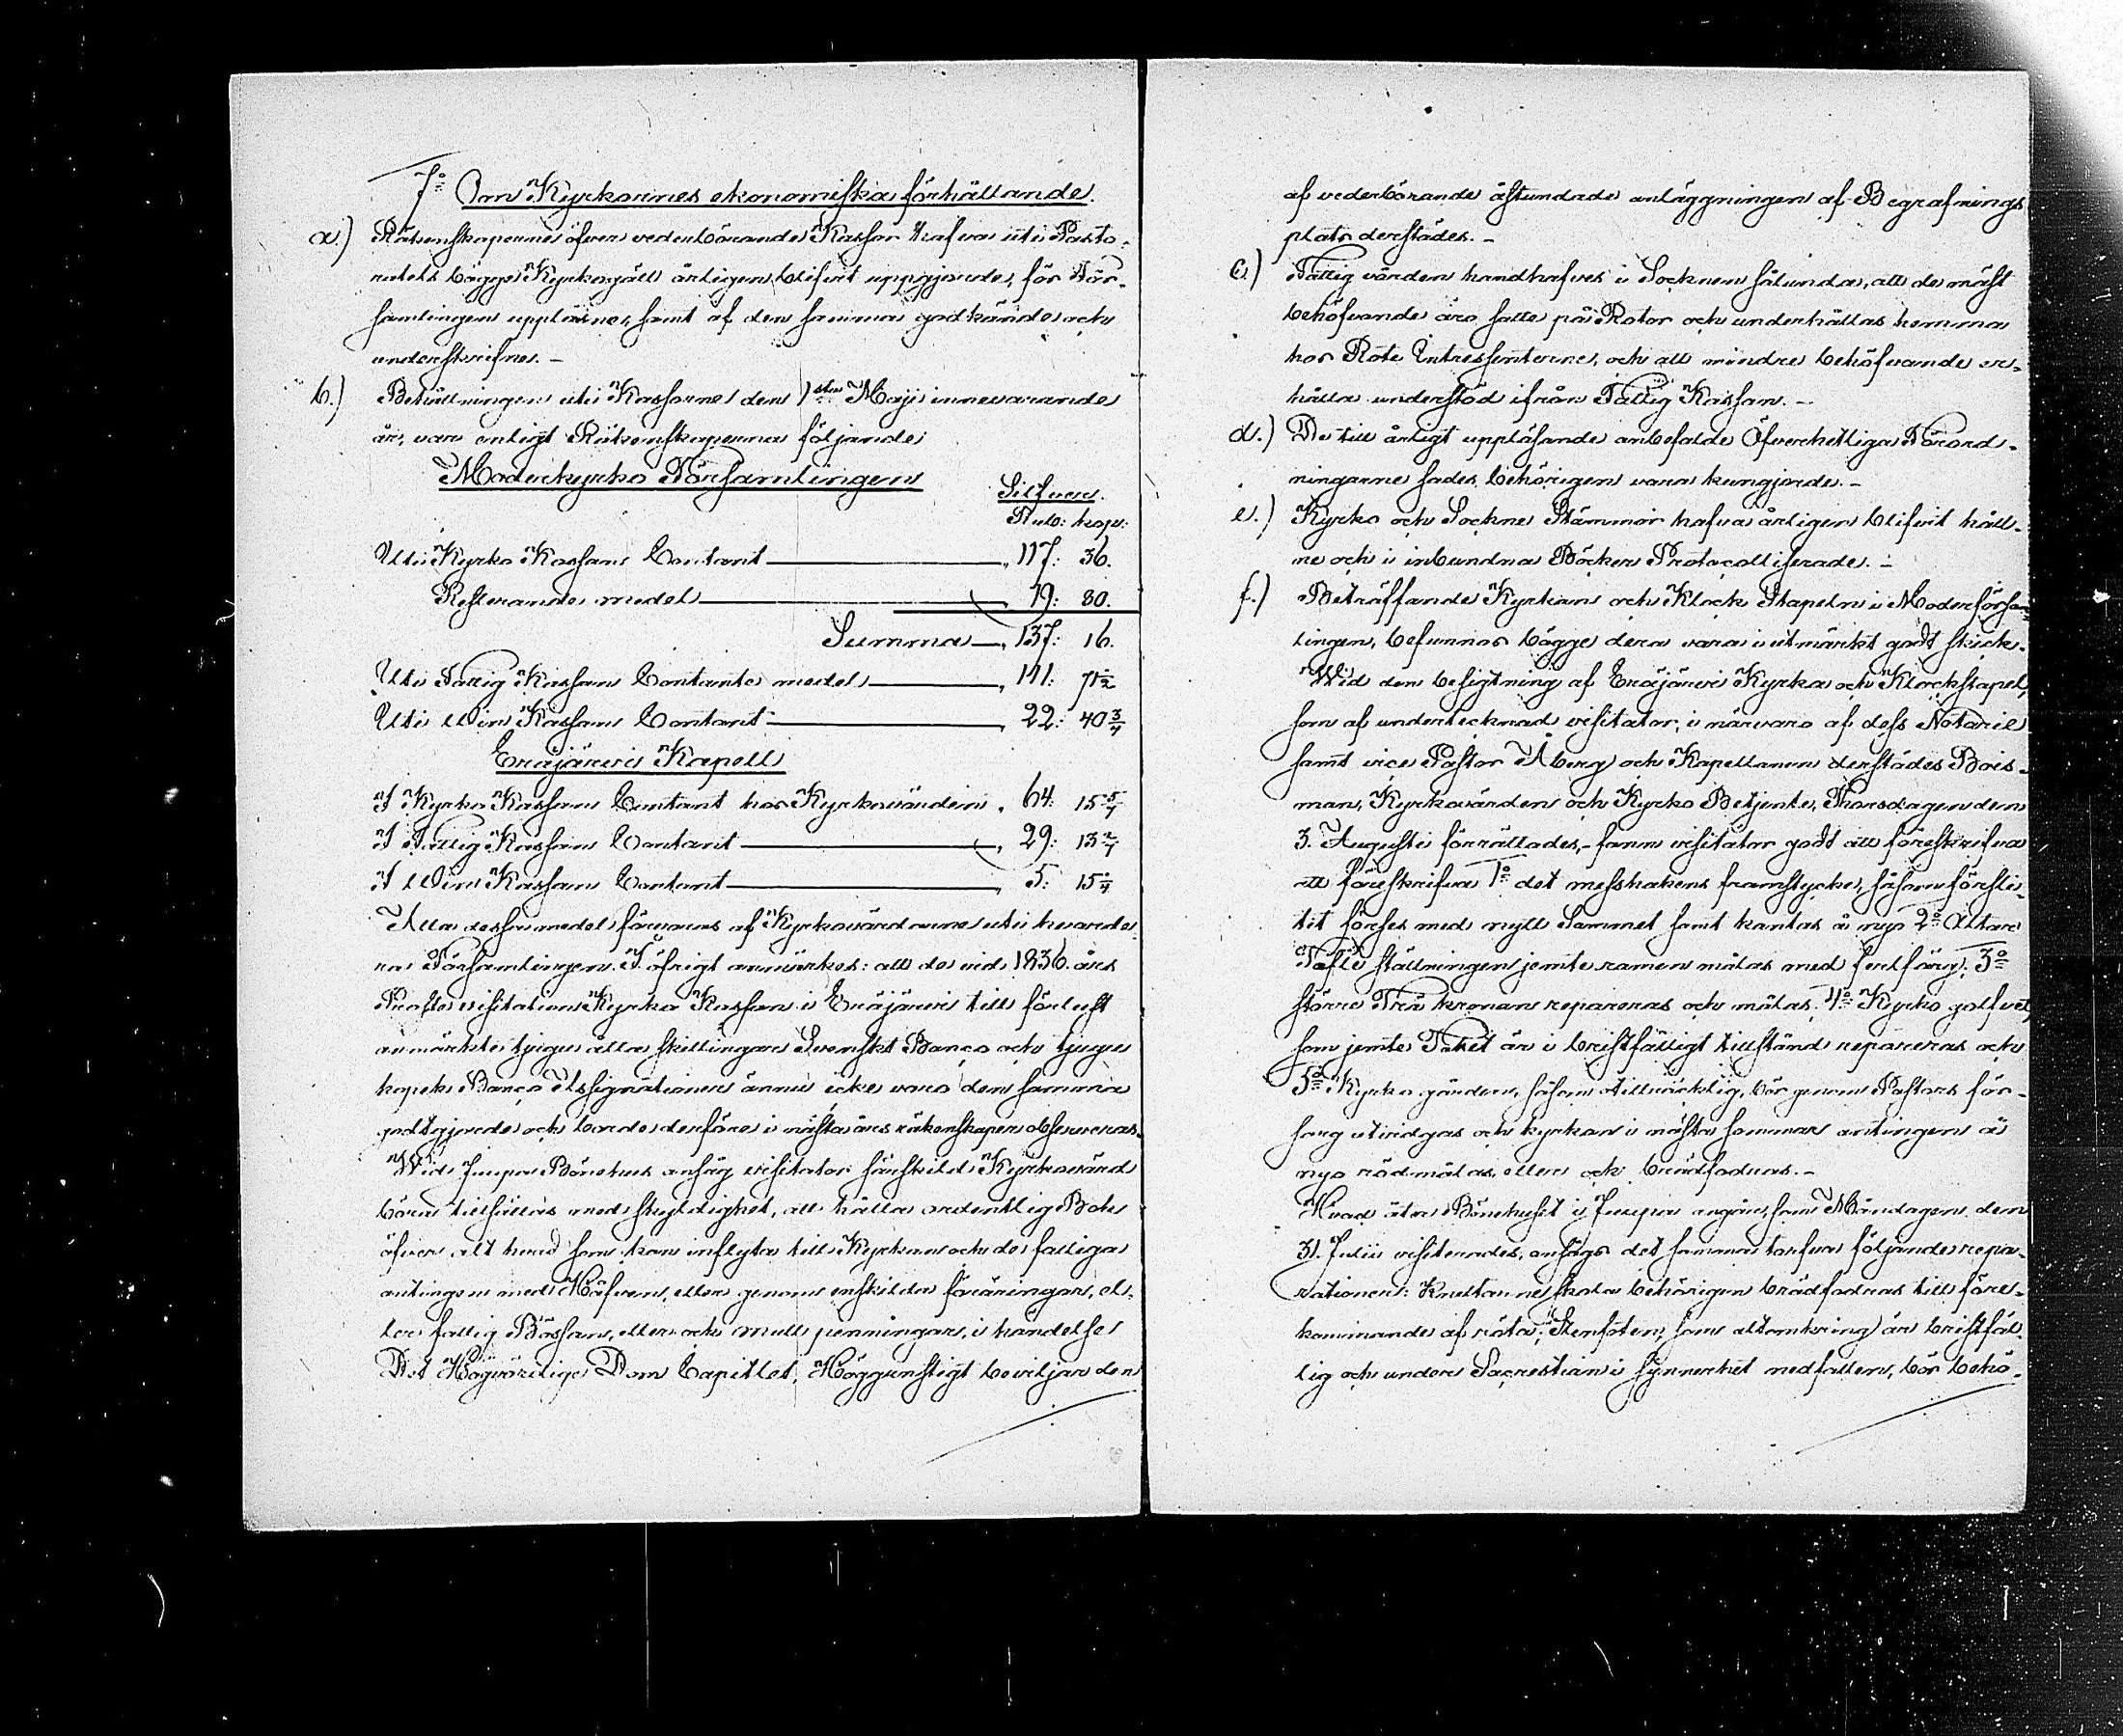 7:o Om Kyrkornes ekonomiska förhållande.
a.) Räkenskaperne öfver vederbörande Kassor hafva uti Pasto-
ratets bägge Kyrkogäll årligen blifvit uppgjorde, för För-
samlingen uppläsne, samt af den samma godkände och
underskrifne. -
b.) Behållningen uti Kassorne den 1sta Maji innevarande
år, var enligt Räkenskaperna följande
Moderkyrko Församlingen
Silfver.
Rub: kop:
Uti Kyrko Kassan Contant 117: 36.
Resterande medel 19: 80.
Summa 137: 16.
Uti Fattig Kassan Contante medel 111: 71 1/2
Uti Win Kassan Contant 22: 40 3/4
Eräjärvi Kapell
I Kyrko Kassan Contant hos Kyrkovärden 64: 15 5/7
I Fattig Kassan Contant 29: 13 2/7
I Win Kassan Contant 5: 15
Alla dessa medel förvaras af Kyrkovärdarne uti hvarde-
ra Församlingen. I öfrigt anmärkes: att de vid 1836 års
Proste visitation Kyrko Kassan i Eräjärvi till förlust
anmärkte tjugu åtta skillingar Svenskt Banco och tjugu
kopek Banco Assignationer ännu icke voro den samma
godtgjorde och borde derföre i nästa års räkenskaper observeras.
Wid Juupa Bönehus ansåg visitator särskild Kyrkovärd
böra tillsättas med skyldighet, att hålla ordentlig Bok
öfver alt hvad som kan inflyta till Kyrkan och de fattiga
antingen med Håfven, eller genom enskilda föräringar, el-
ler fattig Bössan, eller och mull penningar, i händelse
Det Högvördige Dom Capitlet, Höggunstigt beviljar den
af vederbörande åstundade anläggningen af Begrafnings
plats derstädes. -
c.) Fattig vården handhafves i Socknen sålunda, att de mäst
behöfvande äro satte på Rotor och underhållas hemma
hos Rote Intressenterne, och att mindre behöfvande er-
hålla understöd ifrån Fattig Kassan. -
d.) De till årligt uppläsande anbefalde Öfverhetliga Förord-
ningarne sades behörigen vara kungjorde. -
e.) Kyrko och Sockne Stämmor hafva årligen blifvit håll-
ne och i inbundna Böcker Protocolliserade. -
f.) Beträffande Kyrkan och Klock Stapeln i Moderförsam-
lingen, befunnos bägge dera vara i utmärkt godt skick.
Wid den besigtning af Eräjärvi Kyrka och Klockstapel,
som af undertecknad visitator, i närvaro af dess Notarie
samt vice Pastor Åberg och Kapellanen derstädes Bois-
man, Kyrkovärden och Kyrko Betjente, Thorsdagen den
3. Augusti förrättades, - fann visitator godt att föreskrifva
att föreskrifva 1:o det messhakens framstycke, såsom försli-
tit förses med nytt Sammet samt kantas å nyo 2:o Altare
Tafle ställningen jemte ramen målas med färg: 3:o
större Trä kronan repareras och målas. 4:o Kyrko golfvet,
som jemte Taket är i bristfälligt tillstånd repareras och
5:o Kyrko gården, såsom otillräcklig, bör genom Pastors för-
sorg utvidgas och kyrkan i nästa sommar antingen å
nyo rödmålas eller ock brädfodras. -
Hvad åter Bönehuset i Juupa angår, som Måndagen den
31. Julii visiterades, ansågs det samma tarfva följande repa-
rationer: Knutarne skola behörigen brädfodras till före-
kommande af röta; Stenfoten, som altomkring är bristfäl-
lig och under Sacrestian i synnerhet nedfallen, bör behö-